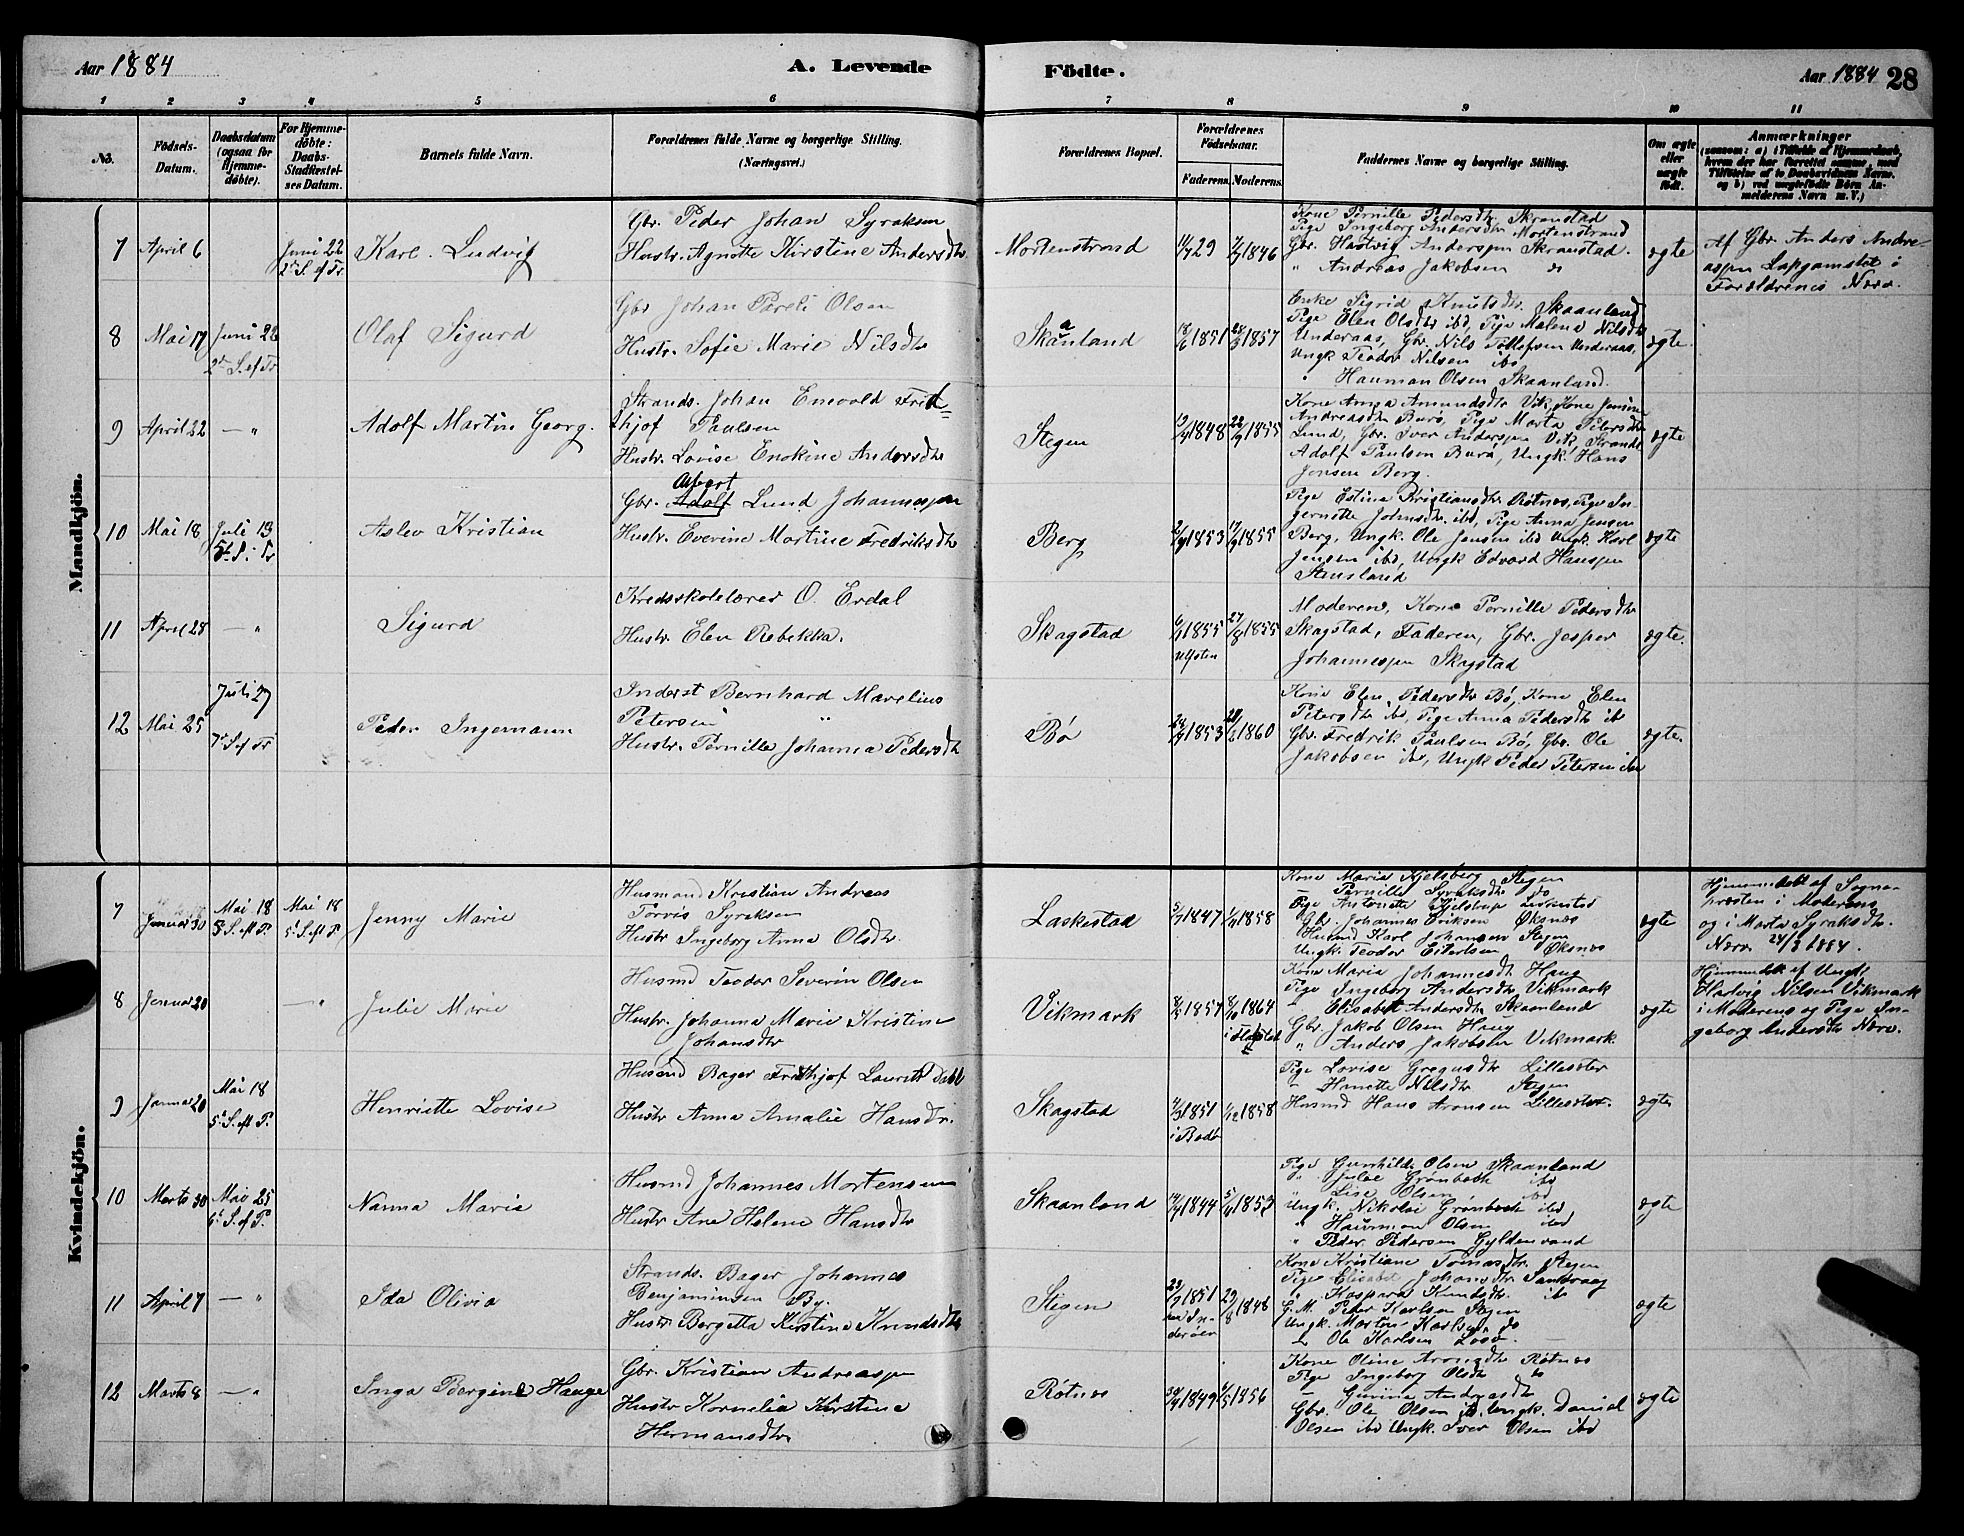 Aar 1884
A. Levende
Födte.
Aar 1884 28
1 2 3 4 5 6 7 8 9 10 11
No.
Födsels-
Datum.
Daabsdatum
(ogsaa for
Hjemme-
döbte).
For Hjemme-
döbte:
Daabs-
Stadfæstel-
ses Datum.
Barnets fulde Navn.
Forældrenes fulde Navne og borgerlige Stilling.
(Næringsvei.)
Forældrenes Bopæl.
Forældrenes
Födselsaar.
Faderens. Moderens.
Faddernes Navne og borgerlige Stilling.
Om ægte
eller
uægte
födt.
Anmærkninger
(saasom: a) i Tilfælde af Hjemmedaab,
hvem der har forrettet samme, med
Tilföielse af to Daabsvidners Navne.
og b) ved uægtefödte Börn An-
melderens Navn m. V.)
Mandkjön.
7 April 6
Juni 22
2 S. ef Tr.
Karl Ludvig
Gbr. Peder Johan Syraksen
Hustr. Agnette Kirstine Andersdtr
Mortenstrand
29
1846
Kone Pernille Pedersdtr. Skranstad
Pige Ingeborg Andersdtr Mortenstrand
Gbr. Hartvig Anderssen Skranstad.
" Andreas Jakobsen do
ægte
Af Gbr. Anders Andre-
assen Lapgamslet i
Forældrenes Nærv.
8 Mai 17
Juni 22
2 S. ef Tr
Olaf Sigurd
Gbr Johan Pareli Olsen
Hustr. Sofie Marie Nilsdtr
Skaanland
1851
1857
Enke Sigrid Knutsdtr. Skaanland
Pige Elen Olsdtr ibd, Pige Malena Nilsdtr
Underaas, Gbr. Nils Tollefsen Underaas,
Ungk Teodor Nilsen ibd
" Hauman Olsen Skaanland.
ægte.
9 April 22
— "
Adolf Martin Georg.
Strands. Johan Enevold Frid=
thjof Paulsen
Hustr. Lovise Enokine Andersdtr
Stegen
1848
1855
Kone Anna Amundsdtr Vik, Kone Jensine
Andreasdtr Burø, Pige Marta Petersdtr
Lund, Gbr. Iver Anderssen Vik, Strands
Adolf Paulsen Burø, Ungk. Hans
Jensen Berg.
ægte
10 Mai 18
Juli 13
5 S. Tr
Aslev Kristian
Albert
Gbr. Adolf Lund Johannessen
Hustr. Everine Martine Fredriksdtr
Berg
1853
1855
Pige Estine Kristiansdtr Røtnes, Pige In-
gernette Johnsdtr ibd, Pige Anna Jensen
Berg, Ungk. Ole Jensen ibd Ungk. Karl
Jensen ibd, Ungk Edvard Hanssen
Stensland
ægte
11 April 28
— "
Sigurd
Kredsskolelærer O. Erdal
Hustr. Elen Rebekka.
Skagstad
1855
1855
Moderen, Kone Pernille Pedersdtr
Skagstad, Faderen, Gbr. Jesper
Johannessen Skagstad
ægte.
12 Mai 25
Juli 27
7 S. ef Tr
Peder Ingemann
Inderst Bernhard Marelius
Petersen "
Hustr. Pernille Johanna Pedersdtr
Bø
1853
1860
Kone Elen Pedersdtr Bø, Kone Elen
Petersdtr ibd, Pige Anna Pedersdtr ib
Gbr. Fredrik Paulsen Bø, Gbr. Ole
Jakobsen ibd, Ungk Peder Petersen ibd
ægte.
Kvindekjön.
7 Januar 30
Mai 18
5 S. eft P.
Mai 18
5 S. eft P.
Jenny Marie
Husmand Kristian Andreas
Torvis Syraksen
Hustr Ingeborg Anna Olsdtr.
Laskestad
1847
1858
Kone Maria Kjelsberg Stegen
— Pernille Syraksdtr do
Pige Antonette Kjelstrup Laskestad
Gbr. Johannes Eriksen Øksnes
Husmd Karl Johansen Stegen
Ungk. Teodor Eilertsen Øksnes
ægte
Hjemmedøbt af Sogne-
presten i Moderens
og i Marta Syraksdtr.
Nærv. 24/3 1884.
8 Januar 20
— "
Julie Marie
Husmd Teodor Severin Olsen
Hustr. Johanna Marie Kristine
Johansdtr
Vikmark
1857
1864
Kone Maria Johannesdtr Haug
Pige Ingeborg Andersdtr Vikmark
" Elisabet Andersdtr Skaanland
Gbr. Jakob Olsen Haug
" Anders Jakobsen Vikmark
ægte
Hjemmedøbt af Ungk.
Hartvig Nilsen Vikmark
i Moderens og Pige In-
geborg Andersdtr Nærv.
9 Januar 20
Mai 18
5 S. eft P.
Henriette Lovise
Husmd Bager Fridthjof Laurits Dahl
Hustr Anna Amalie Hansdtr.
Skagstad
1851
i Bodø
1858
Pige Lovise Gregusdtr Lillester
— Hanette Nilsdtr Stegen
Husmd Hans Aronsen Lillester.
ægte
10 Marts 30
Mai 25
6 S. ef P.
Nanna Marie
Husmd Johannes Mortensen
Hustr Ane Helene Hansdtr
Skaanland
1844
1853
Pige Gunhilda Olsen Skaanland
" Julie Grønbech ibd
" Lise Olsen ibd
Ungk. Nikolai Grønbech ibd
" Hauman Olsen ibd
" Peder Pedersen Gyldenvand
ægte
11 April 7
— "
Ida Olivia
Strands. Bager Johannes
Benjaminsen By.
Hustr Bergetta Kirstine Knudsdtr
Stegen
1851
1848
Kone Kristiane Tomasdtr. Stegen
Pige Elisabet Johansdtr Sandvaag
" Kaspara Knudsdtr. ibd
G.M. Peder Karlsen Stegen
Ungk. Morten Karlsen do
" Ole Karlsen
ægte
12 Marts 8
— "
Inga Bergine Hauge
Gbr. Kristian Andreassen
Hustr Kornelia Kirstine
Hermansdtr.
Røtnes
1849
1856
Kone Oline Aronsdtr Røtnes
Pige Ingeborg Olsdtr do
— Gurina Andreasdtr
Gbr. Ole Olsen ib. Ungk. Daniel
Olsen ibd Ungk. Iver Olsen ibd
ægte